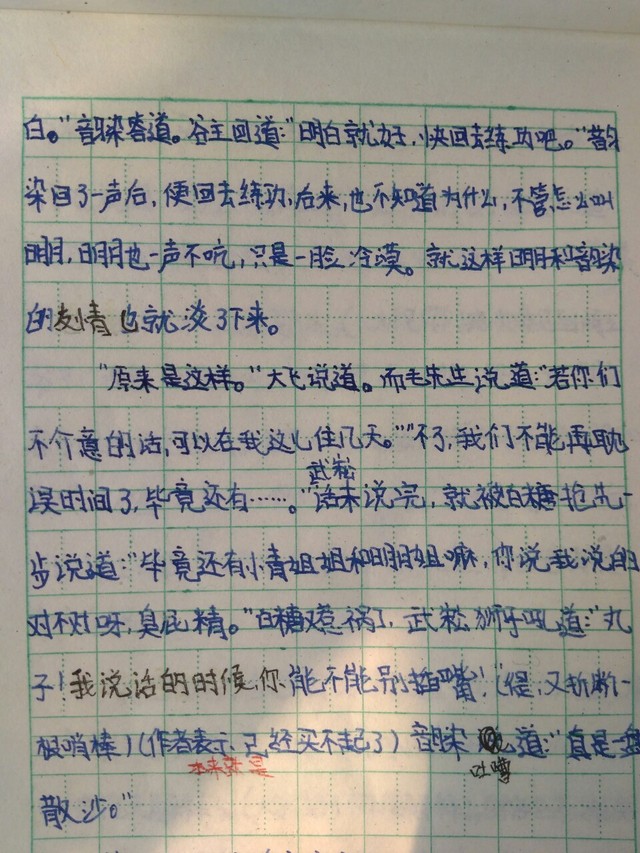 白。"韵染答道。谷主回道:"明白就好,快回去练功吧。"韵
染回了一声后,便回去练功,后来,也不知道为什么,不管怎么叫
明月,明月也一声不吭,只是一脸冷漠。就这样明月和韵染
的友情也就淡了下来。
"原来是这样。"大飞说道。而毛先生说道:"若你们
不介意的话,可以在我这儿住几天。""不了,我们不能再耽
误时间了,毕竟还有……。"武松话未说完,就被白糖抢先一
步说道:"毕竟还有小青姐姐和明月姐嘛,你说我说的
对不对呀,臭屁精。"白糖又惹祸了,武松狮子吼道:"丸
子!我说话的时候,你能不能别插嘴!(缇,又折断一
根哨棒)(作者表示已经买不起了)韵染吐嘈道:"真是一盘
本来就是
散沙。"